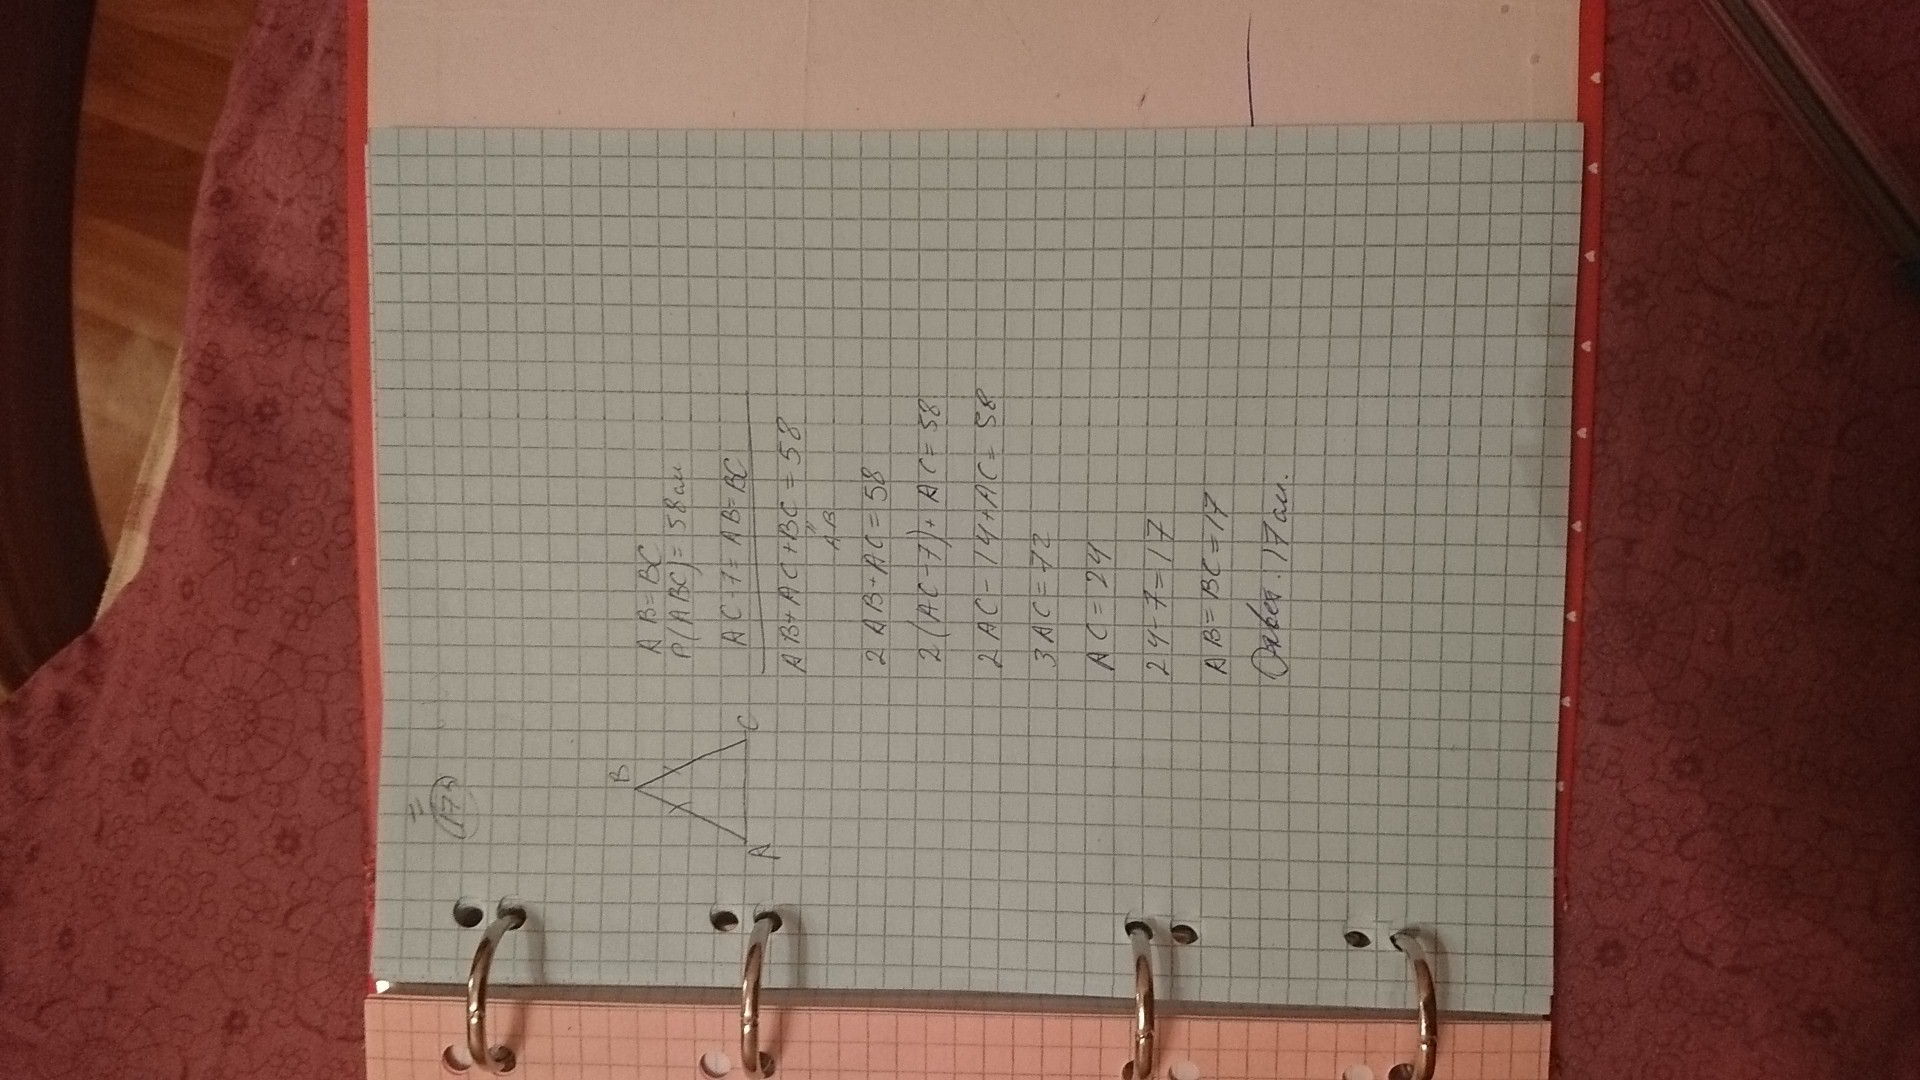 B
A
C
AB=BC
P(ABC)=58см
AC-7=AB=BC
AB+AC+BC=58
AB
2AB+AC=58
2(AC-7)+AC=58
2AC-14+AC=58
3AC=72
AC=24
24-7=17
AB=BC=17
Ответ. 17см.